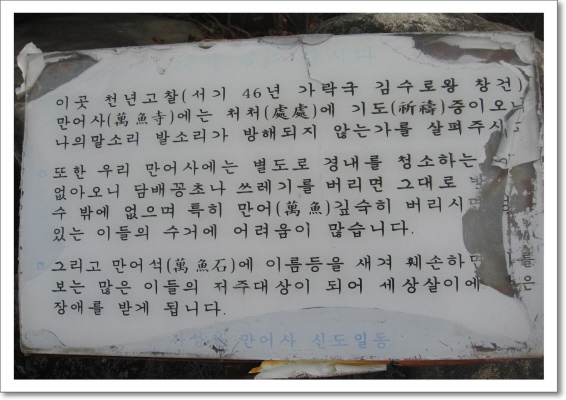 이곳 천년고찰(서기 46년 가락국 김수로왕 창건)
만어사(萬魚寺)에는 처처(處處)에 기도(祈禱)중이오니
나의말소리 발소리가 방해되지 않는가를 살펴주시
또한 우리 만어사에는 별도로 경내를 청소하는
없아오니 담배꽁초나 쓰레기를 버리면 그대로
수 밖에 없으며 특히 만어(萬魚)깊숙히 버리시면
있는 이들의 수거에 어려움이 많습니다.
그리고 만어석(萬魚石)에 이름등을 새겨 훼손하면 를
보는 많은 이들의 저주대상이 되어 세상살이에 은
장애를 받게 됩니다.
만어사 신도일동